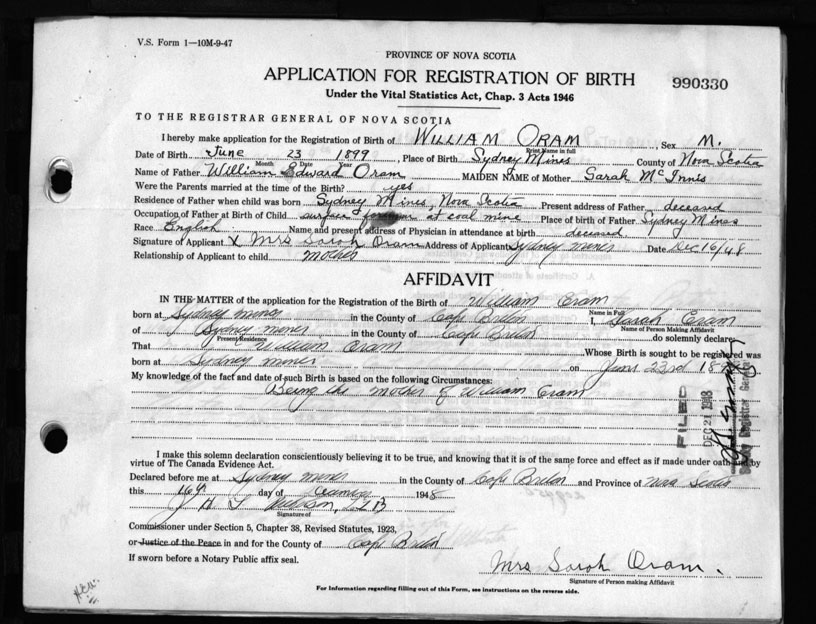 V.S. Form 1—10M-9-47
PROVINCE OF NOVA SCOTIA
APPLICATION FOR REGISTRATION OF BIRTH
990330
Under the Vital Statistics Act, Chap. 3 Acts 1946
TO THE REGISTRAR GENERAL OF NOVA SCOTIA
I hereby make application for the Registration of Birth of WILLIAM ORAM, Sex M.
Print Name in full
Date of Birth June 23 1899, Place of Birth Sydney Mines County of Nova Scotia
Month Date Year
Name of Father William Edward Oram MAIDEN NAME of Mother Sarah McInnis
Were the Parents married at the time of the Birth? yes
Residence of Father when child was born Sydney Mines, Nova Scotia Present address of Father deceased
Occupation of Father at Birth of Child surface foreman at coal mine Place of birth of Father Sydney Mines
Race English Name and present address of Physician in attendance at birth deceased
Signature of Applicant X Mrs Sarah Oram Address of Applicant Sydney mines Date Dec 16/48
Relationship of Applicant to child mother
AFFIDAVIT
IN THE MATTER of the application for the Registration of the Birth of William Oram
Name in Full
born at Sydney mines in the County of Cape Breton I, Sarah Oram
Name of Person Making Affidavit
of Sydney mines in the County of Cape Breton do solemnly declare:
Present Residence
That William Oram Whose Birth is sought to be registered was
born at Sydney mines on June 23rd
My knowledge of the fact and date of such Birth is based on the following Circumstances:
Being the mother of William Oram
FILED
DEC 21 1948
Deputy Registrar General
I make this solemn declaration conscientiously believing it to be true, and knowing that it is of the same force and effect as if made under oath and by
virtue of The Canada Evidence Act.
Declared before me at Sydney mines in the County of Cape Breton and Province of Nova Scotia
this 16th day of December 1948
Signature of
Commissioner under Section 5, Chapter 38, Revised Statutes, 1923,
or Justice of the Peace in and for the County of Cape Breton
If sworn before a Notary Public affix seal.
Mrs Sarah Oram.
Signature of Person making Affidavit
For Information regarding filling out of this Form, see instructions on the reverse side.